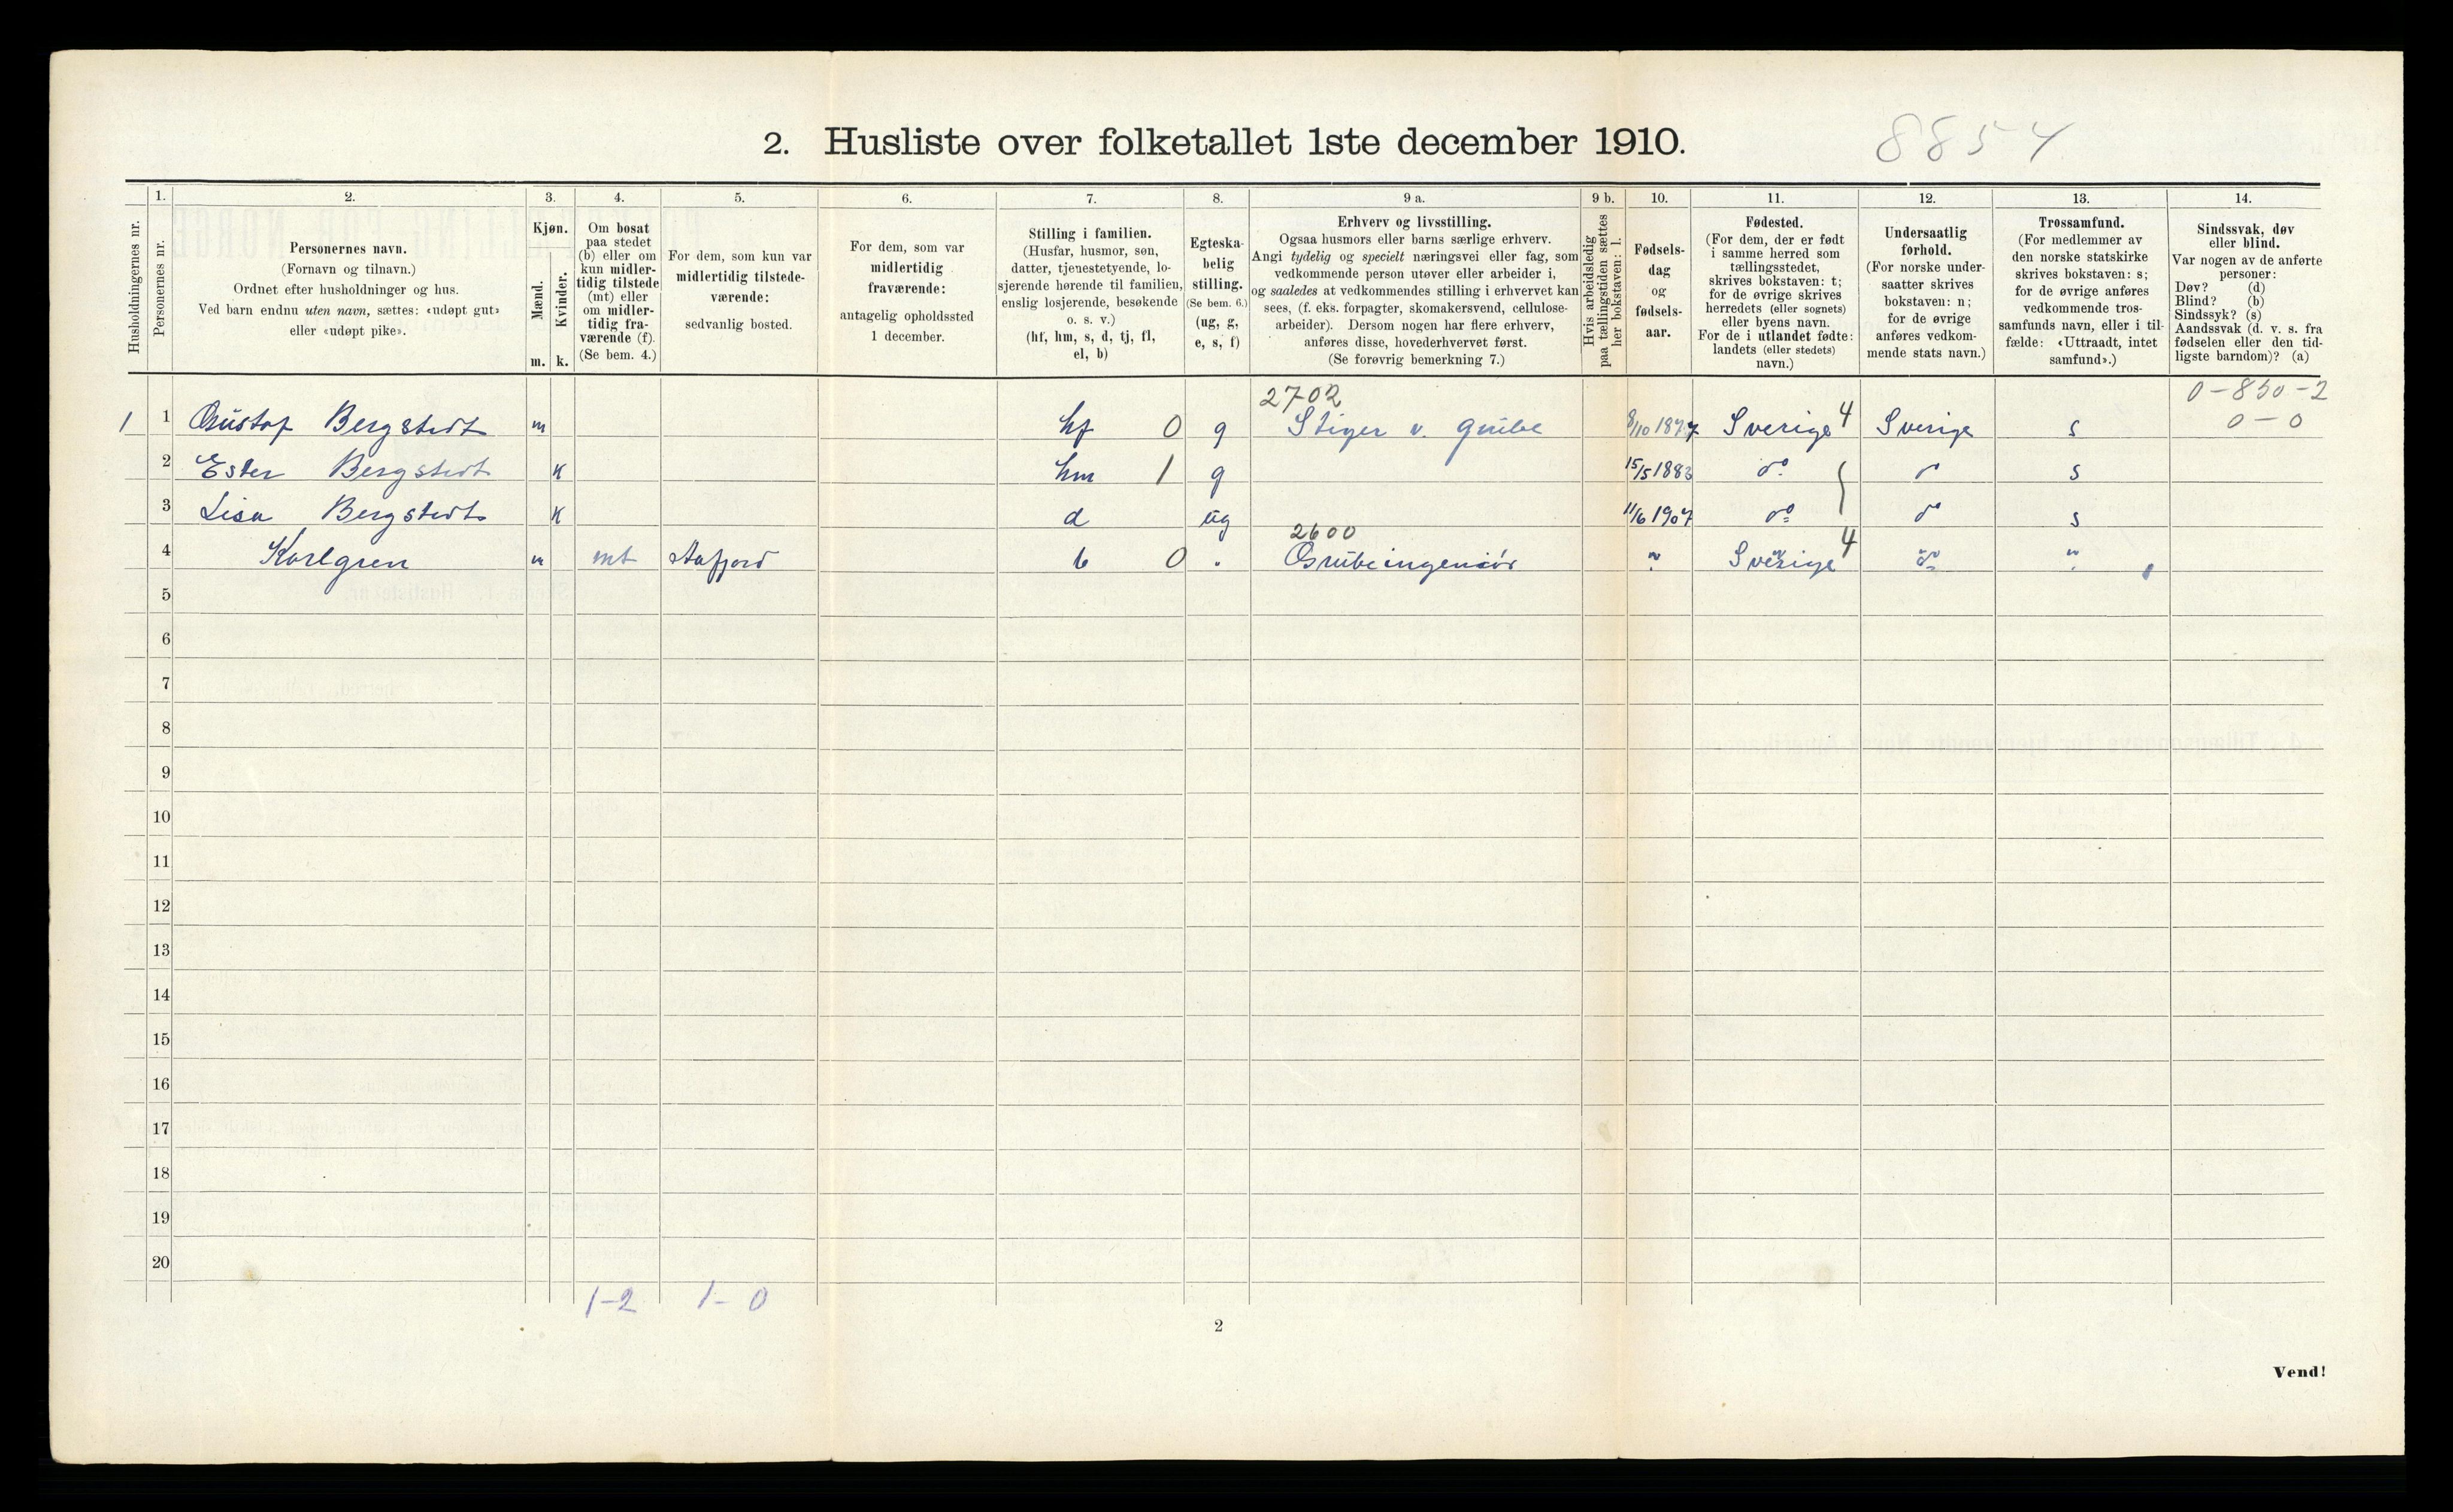 2. Husliste over folketallet 1ste december 1910.
8854
Husholdningernes nr.
1.
Personernes nr.
2.
Personernes navn.
(Fornavn og tilnavn.)
Ordnet efter husholdninger og hus.
Ved barn endnu uten navn, sættes: «udøpt gut»
eller «udøpt pike».
3.
Kjøn.
Mænd.
Kvinder.
m. k.
4.
Om bosat
paa stedet
(b) eller om
kun midler-
tidig tilstede
(mt) eller
om midler-
tidig fra-
værende (f).
(Se bem. 4.)
5.
For dem, som kun var
midlertidig tilstede-
værende:
sedvanlig bosted.
6.
For dem, som var
midlertidig
fraværende:
antagelig opholdssted
1 december.
7.
Stilling i familien.
(Husfar, husmor, søn,
datter, tjenestetyende, lo-
sjerende hørende til familien,
enslig losjerende, besøkende
o. s. v.)
(hf, hm, s, d, tj, fl,
el, b)
8.
Egteska-
belig
stilling.
(Se bem. 6.)
(ug, g,
e, s, f)
9 a.
Erhverv og livsstilling.
Ogsaa husmors eller barns særlige erhverv.
Angi tydelig og specielt næringsvei eller fag, som
vedkommende person utøver eller arbeider i,
og saaledes at vedkommendes stilling i erhvervet kan
sees, (f. eks. forpagter, skomakersvend, cellulose-
arbeider). Dersom nogen har flere erhverv,
anføres disse, hovederhvervet først.
(Se forøvrig bemerkning 7.)
9 b.
Hvis arbeidsledig
paa tællingstiden sættes
her bokstaven: l.
10.
Fødsels-
dag
og
fødsels-
aar.
11.
Fødested.
(For dem, der er født
i samme herred som
tællingsstedet,
skrives bokstaven: t;
for de øvrige skrives
herredets (eller sognets)
eller byens navn.
For de i utlandet fødte:
landets (eller stedets)
navn.)
12.
Undersaatlig
forhold.
(For norske under-
saatter skrives
bokstaven: n;
for de øvrige
anføres vedkom-
mende stats navn.)
13.
Trossamfund.
(For medlemmer av
den norske statskirke
skrives bokstaven: s;
for de øvrige anføres
vedkommende tros-
samfunds navn, eller i til-
fælde: «Uttraadt, intet
samfund».)
14.
Sindssvak, døv
eller blind.
Var nogen av de anførte
personer:
Døv? (d)
Blind? (b)
Sindssyk? (s)
Aandssvak (d. v. s. fra
fødselen eller den tid-
ligste barndom)? (a)
2702 0-850-2
1 1 Gustaf Bergstedt m hf 0 g Stiger v. grube 8/10 1877 Sverige 4 Sverige s 0-0
2 Ester Bergstedt k hm 1 g 15/5 1883 do do s
3 Lisa Bergstedt k d ug 11/6 1907 do do s
2600
4 Karlgren m mt Aafjord b 0 . Grubeingeniør " Sverige 4 " "
5
6
7
8
9
10
11
12
13
14
15
16
17
18
19
20
1-2 1-0
2
Vend!